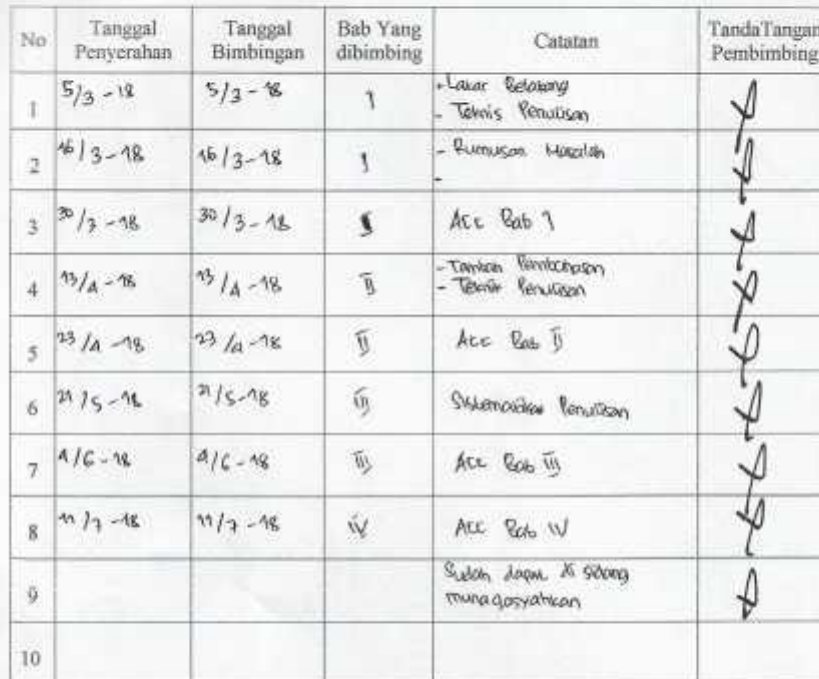 No Tanggal Penyerahan Tanggal Bimbingan Bab Yang dibimbing Catatan TandaTangan Pembimbing
1 5/3-18 5/3-18 I - Latar Belakang
- Teknis Penulisan
2 16/3-18 16/3-18 I - Rumusan Masalah
-
3 30/3-18 30/3-18 I Acc Bab I
4 13/4-18 13/4-18 II - Tambah Pembahasan
- Teknis Penulisan
5 23/4-18 23/4-18 II Acc Bab II
6 21/5-18 21/5-18 III Sistematika Penulisan
7 4/6-18 4/6-18 III Acc Bab III
8 11/7-18 11/7-18 IV Acc Bab IV
9 Sudah dapat di sidang
munaqosyahkan
10